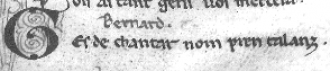 Bernard.
Ges de chantar nom pren talanz.